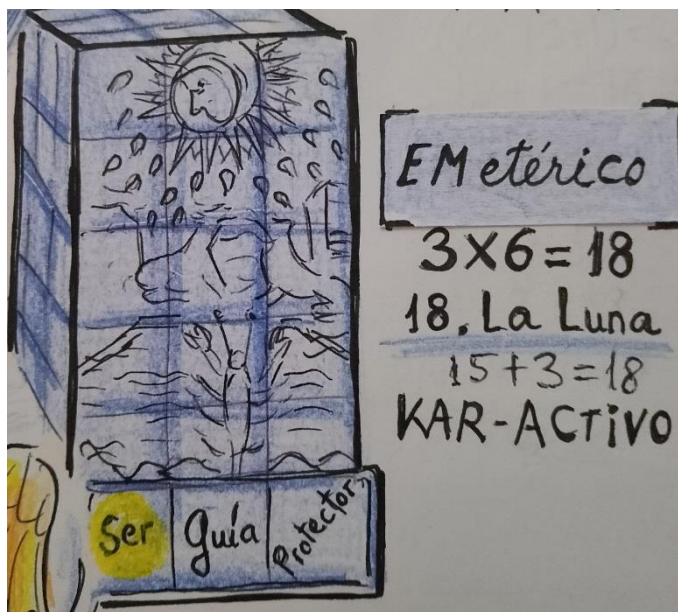 EM etérico
3X6=18
18. La Luna
15+3=18
KAR-ACTIVO
Ser guía Protector